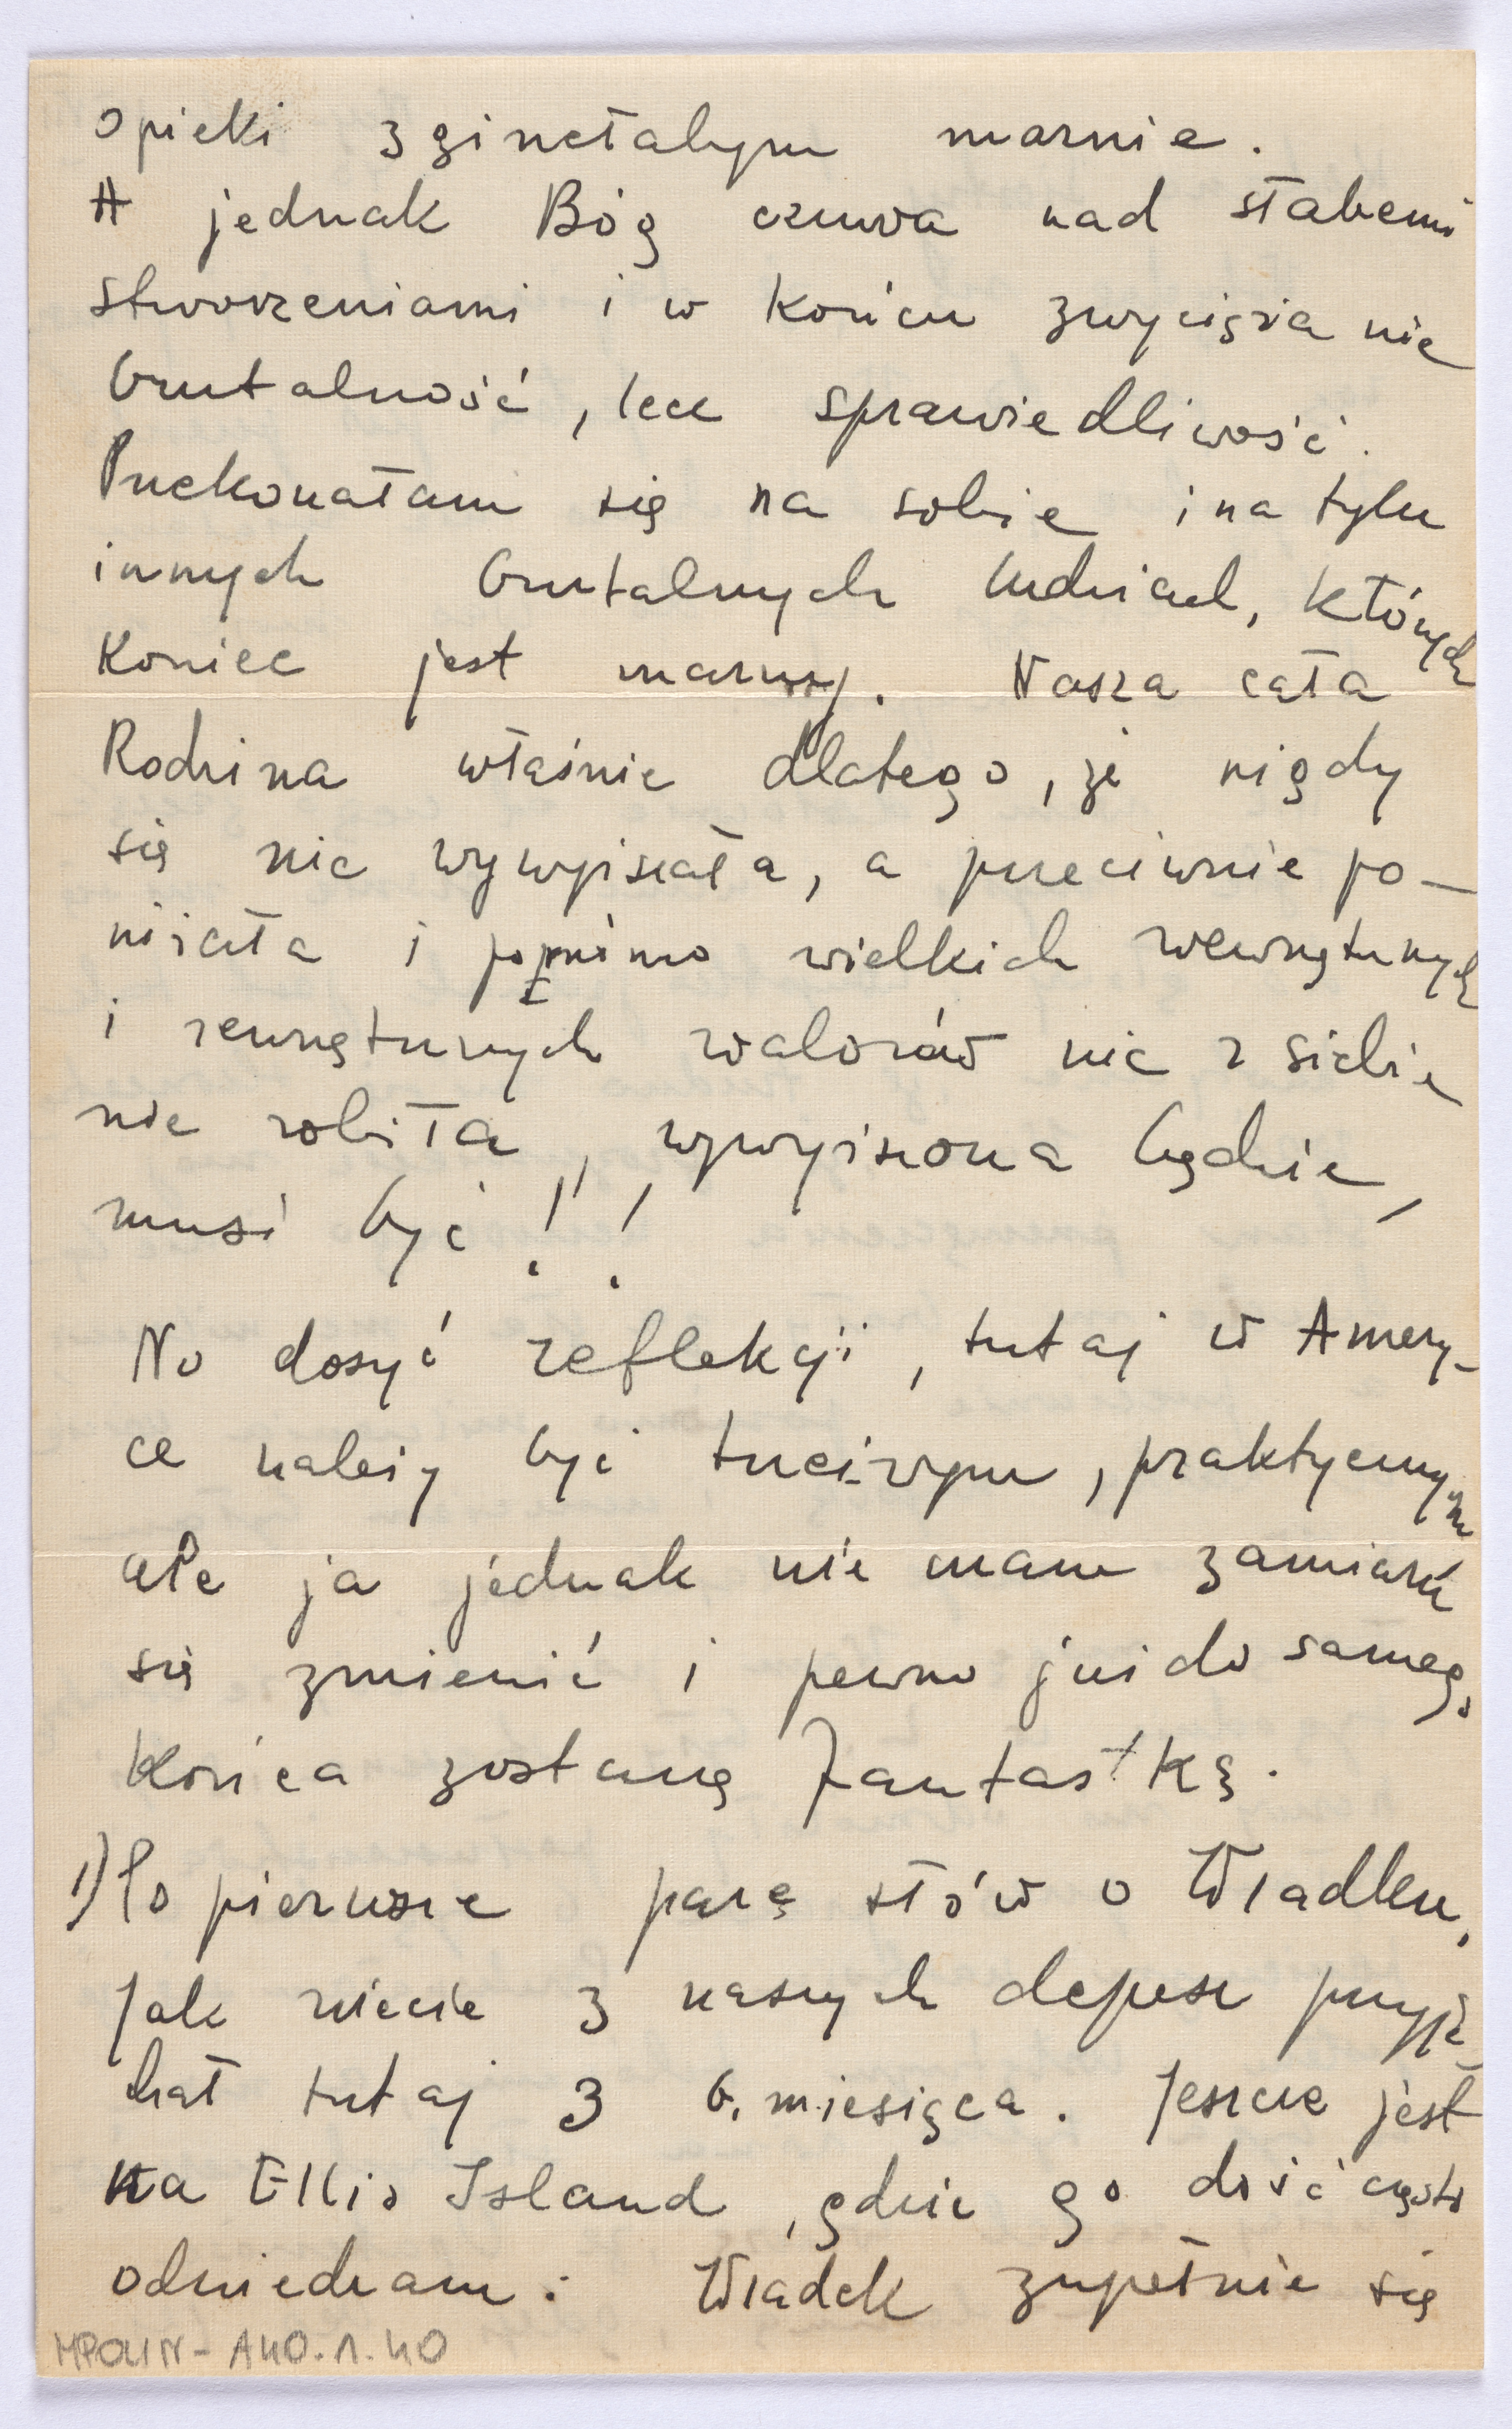 opieki zginełabym marnie.
A jednak Bóg czuwa nad słabemi
stworzeniami i w końcu zwycięża nie
brutalność, lecz sprawiedliwość.
Przekonałam się na sobie i na tylu
innych brutalnych ludziach, których
koniec jest marny. Nasza cała
Rodzina właśnie dlatego, że nigdy
się nie wywyższała, a przeciwnie po-
niżała i pomimo wielkich wewnętrznych
i zewnętrznych walorów nic z siebie
nie robiła, wywyższona będzie,
musi być!!
No dosyć reflekcji, tutaj w Amery-
ce należy być trzeźwym, praktycznym
ale ja jednak nie mam zamiaru
się zmienić i pewno już do samego
końca zostanę fantastką.
1) Po pierwsze parę słów o Władku,
Jak wiecie z naszych depesz przyje-
chał tutaj 3 b. miesiąca. Jeszcze jest
na Ellis Island, gdzie go dość często
odwiedzam. Władek zupełnie się
MPOLIN-A40.1.40